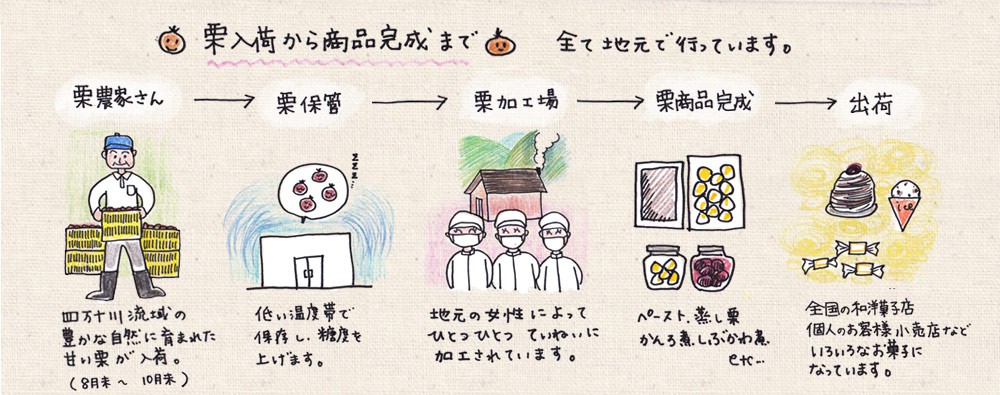 栗入荷から商品完成まで 全て地元で行っています。
栗農家さん → 栗保管 → 栗加工場 → 栗商品完成 → 出荷
四万十川流域の
豊かな自然に育まれた
甘い栗が入荷。
(8月末〜10月末)
zzz
低い温度帯で
保存し、糖度を
上げます。
地元の女性によって
ひとつひとつていねいに
加工されています。
ペースト、蒸し栗
かんろ煮、しぶかわ煮
etc…
ice
全国の和洋菓子店
個人のお客様小売店など
いろいろなお菓子に
なっています。